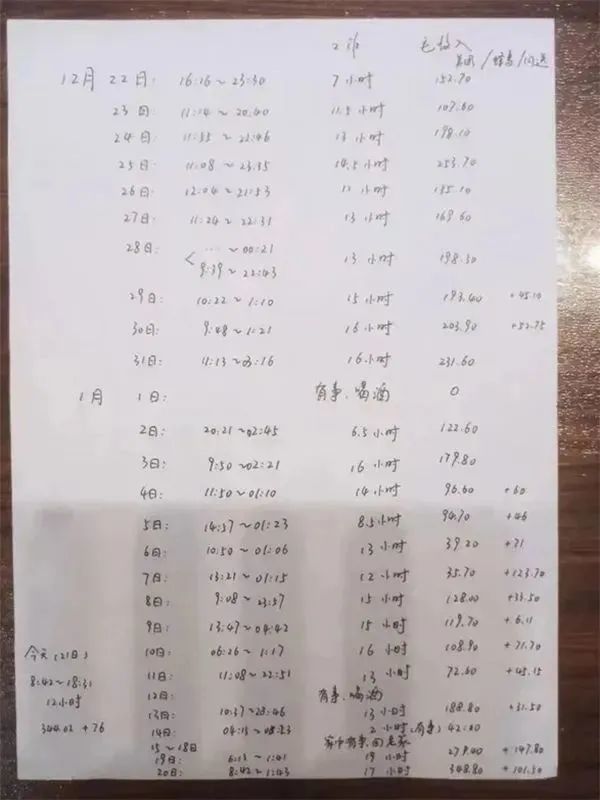 工作 毛收入
美团/蜂鸟/闪送
12月 22日: 16:16~23:30 7小时 152.70
23日: 11:14~20:40 11.5小时 107.60
24日: 11:55~22:46 13小时 198.10
25日: 11:08~23:35 14.5小时 253.70
26日: 12:04~21:53 11小时 135.10
27日: 11:24~22:31 13小时 169.60
28日: < ...~00:21
9:39~22:43 13小时 198.30
29日: 10:22~1:10 15小时 193.40 +45.10
30日: 9:48~1:21 16小时 203.90 +52.75
31日: 11:13~03:16 16小时 231.60
1月 1日: 有事、喝酒 0
2日: 20:21~02:45 6.5小时 122.60
3日: 9:50~02:21 16小时 179.80
4日: 11:50~01:10 14小时 96.60 +60
5日: 14:37~01:23 8.5小时 94.70 +46
6日: 10:50~01:06 13小时 39.20 +71
7日: 13:21~01:15 12小时 35.70 +123.70
8日: 9:08~23:57 15小时 128.00 +33.50
9日: 13:47~04:42 15小时 119.70 +6.11
10日: 06:26~1:17 16小时 108.90 +71.70
11日: 11:08~22:51 13小时 72.60 +45.15
12日: 有事、喝酒
13日: 10:37~23:46 13小时 188.80 +31.50
14日: 04:15~08:23 2小时(有事) 42.00
15~18日 家中有事,回老家
19日: 6:13~1:41 19小时 279.00 +147.80
20日: 8:42~1:43 17小时 348.80 +101.50
今天(21日)
8:42~18:31
12小时
344.02+76